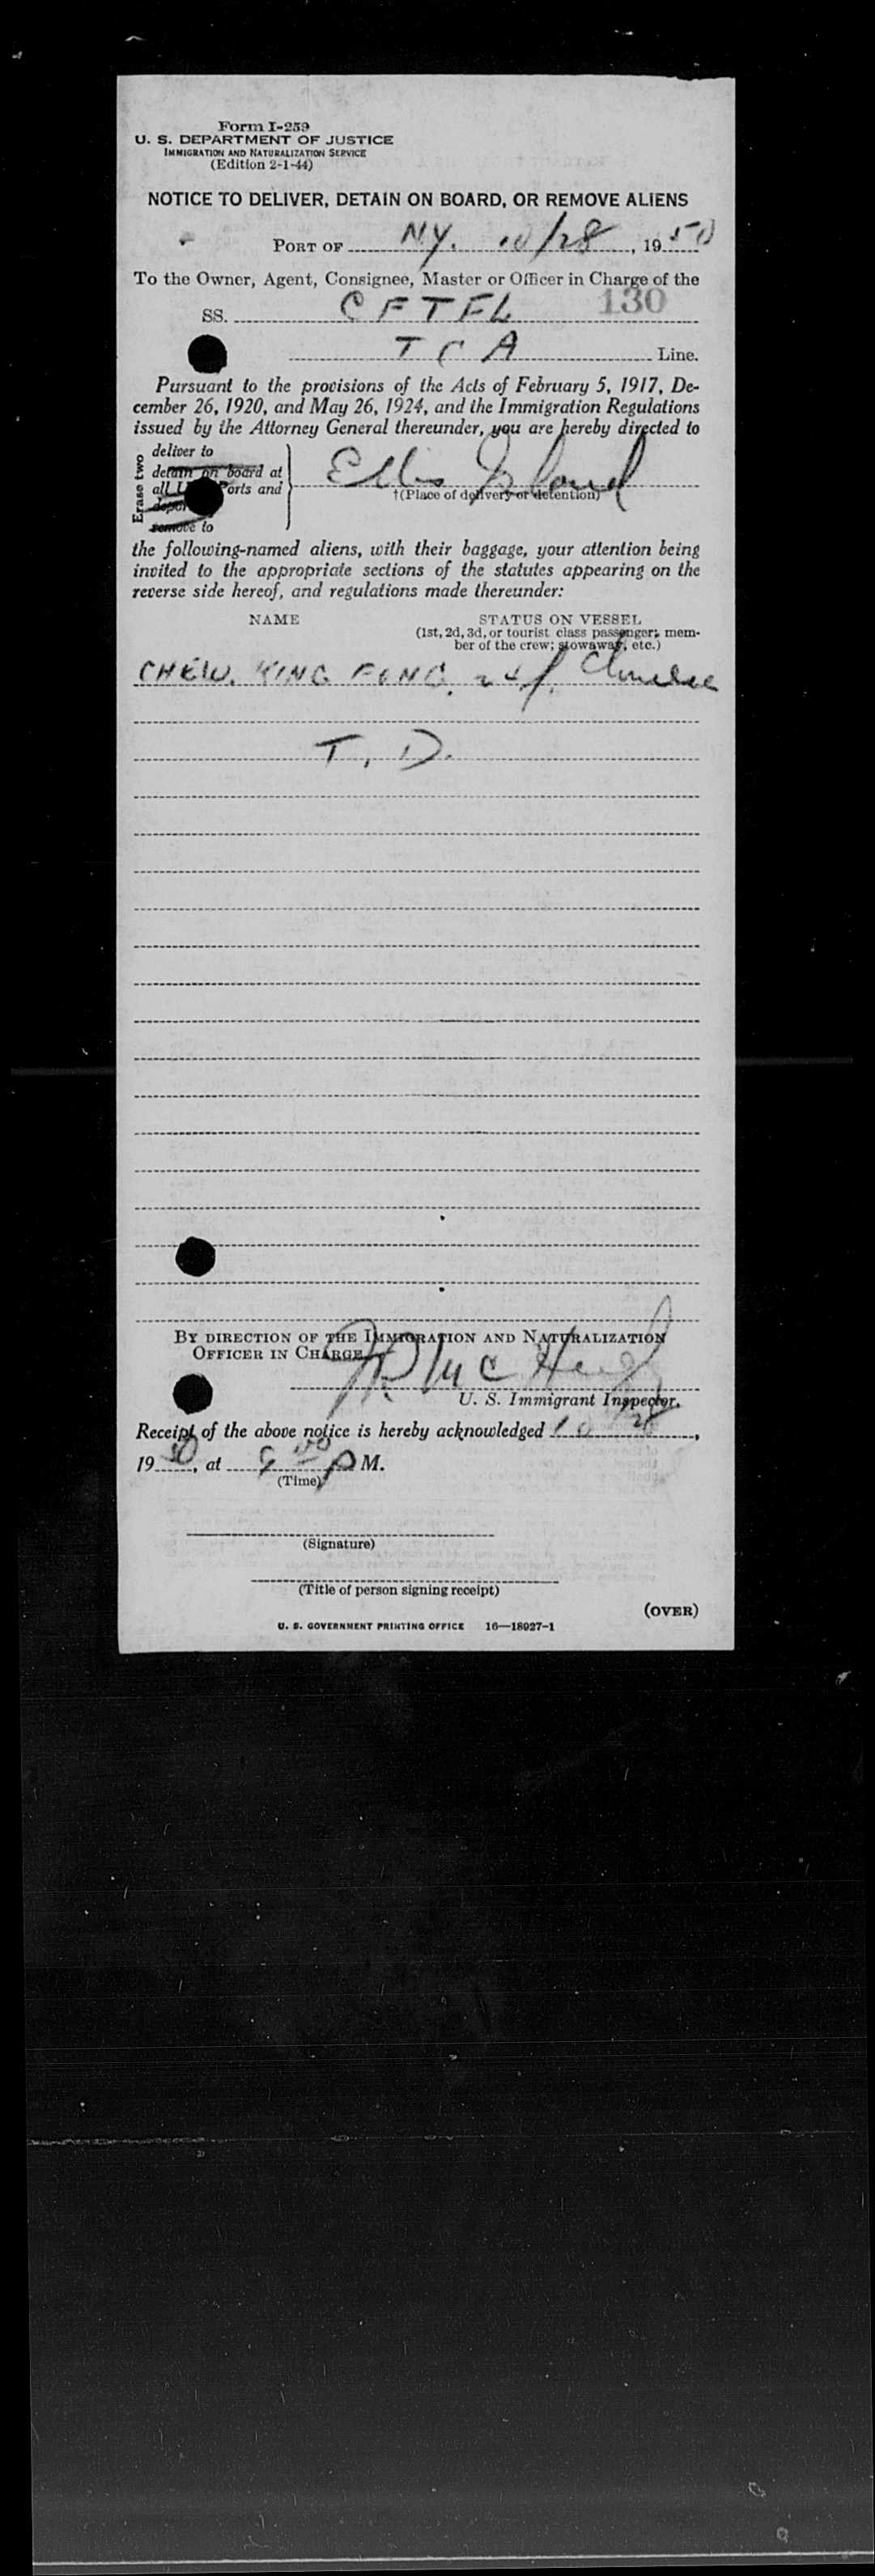 Form I-259
U. S. DEPARTMENT OF JUSTICE
IMMIGRATION AND NATURALIZATION SERVICE
(Edition 2-1-44)
NOTICE TO DELIVER, DETAIN ON BOARD, OR REMOVE ALIENS
PORT OF NY. 10/28, 1950
To the Owner, Agent, Consignee, Master or Officer in Charge of the
130
SS. CFTFL
TCA Line.
Pursuant to the provisions of the Acts of February 5, 1917, De-
cember 26, 1920, and May 26, 1924, and the Immigration Regulations
issued by the Attorney General thereunder, you are hereby directed to
Erase two
deliver to
detain on board at
all U orts and
remove to
Ellis Island
†(Place of delivery or detention)
the following-named aliens, with their baggage, your attention being
invited to the appropriate sections of the statutes appearing on the
reverse side hereof, and regulations made thereunder:
NAME STATUS ON VESSEL
(1st, 2d, 3d, or tourist class passenger; mem-
ber of the crew; stowaway, etc.)
CHEW. KING FONG. 24 f. Chinese
T. D.
BY DIRECTION OF THE IMMIGRATION AND NATURALIZATION
OFFICER IN CHARGE
U. S. Immigrant Inspector.
Receipt of the above notice is hereby acknowledged 10 28,
1950, at P M.
(Time)
(Signature)
(Title of person signing receipt)
(OVER)
U. S. GOVERNMENT PRINTING OFFICE 16—18027-1